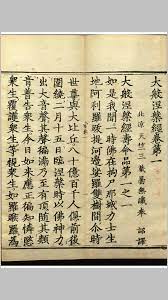 大般涅槃經卷第
北涼天竺三藏曇無讖奉 詔譯
大般涅槃經壽命品第一之一
如是我聞一時佛在拘尸那城力士生
地阿利羅跋提河邊娑羅雙樹間爾時
世尊與大比丘八十億百千人俱前後
圍繞二月十五日臨涅槃時以佛神力
出大音聲其聲遍滿乃至有頂隨其類
音普告眾生今日如來應正遍知憐愍
眾生覆護眾生等視眾生如羅睺羅為